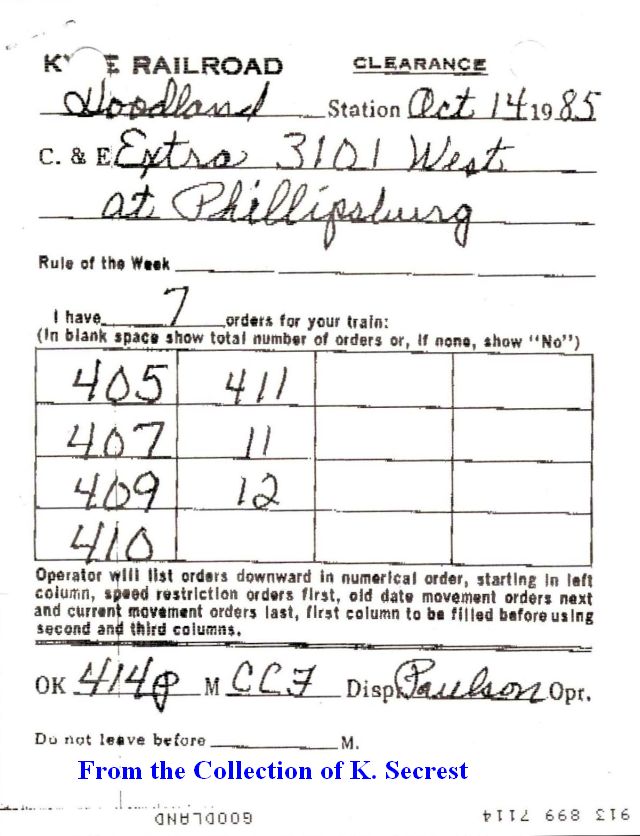 K E RAILROAD CLEARANCE
Goodland Station Oct 14 1985
C. & E Extra 3101 West
at Phillipsburg
Rule of the Week
I have 7 orders for your train:
(In blank space show total number of orders or, if none, show "No")
405 411
407 11
409 12
410
Operator will list orders downward in numerical order, starting in left
column, speed restriction orders first, old date movement orders next
and current movement orders last, first column to be filled before using
second and third columns.
OK 414p M CCF Disp. Paulson Opr.
Do not leave before M.
From the Collection of K. Secrest
913 899 7114 GOODLAND